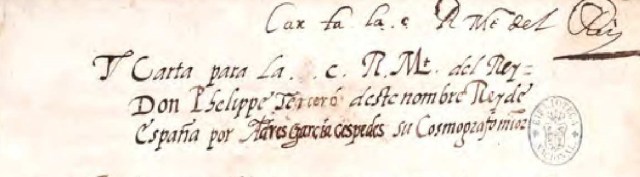 Carta la. c. R. Mt. del Rei
Carta para La . . c. R. Mt. del Rey=
Don Phelippe Tercero deste nombre Rey de
España por Andres Garcia cespedes su Cosmografo mior
BIBLIOTECA NACIONAL